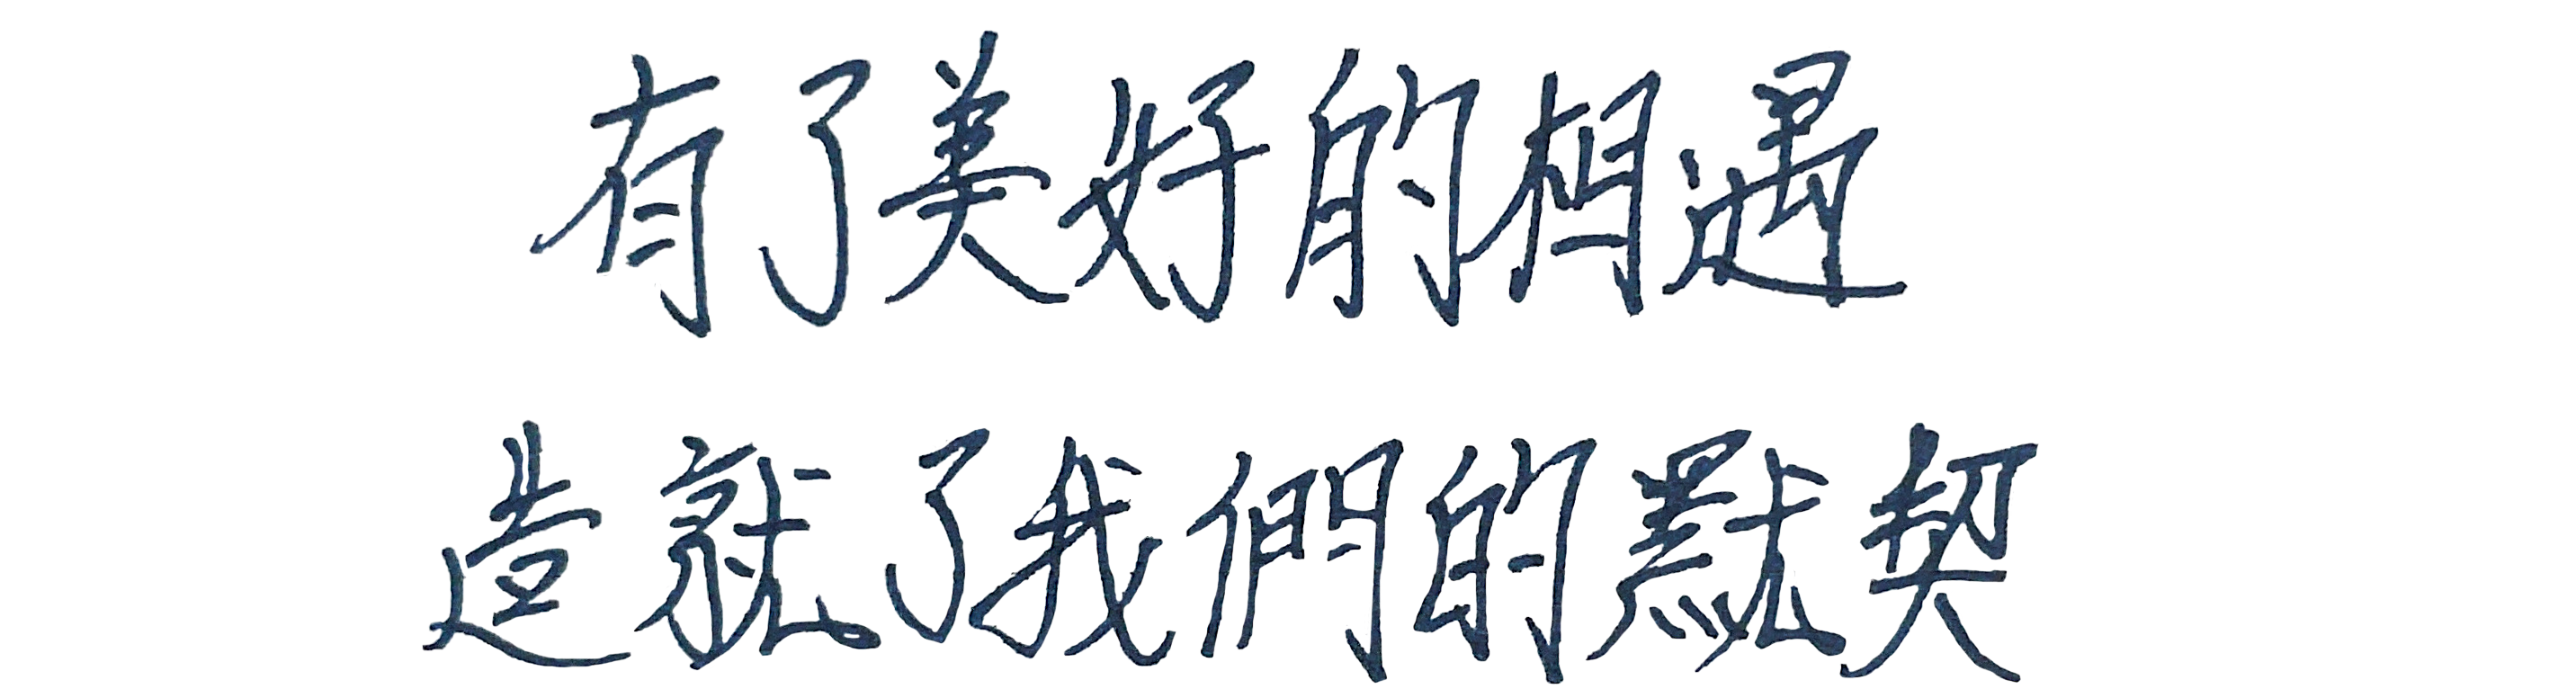 有了美好的相遇
造就了我們的默契